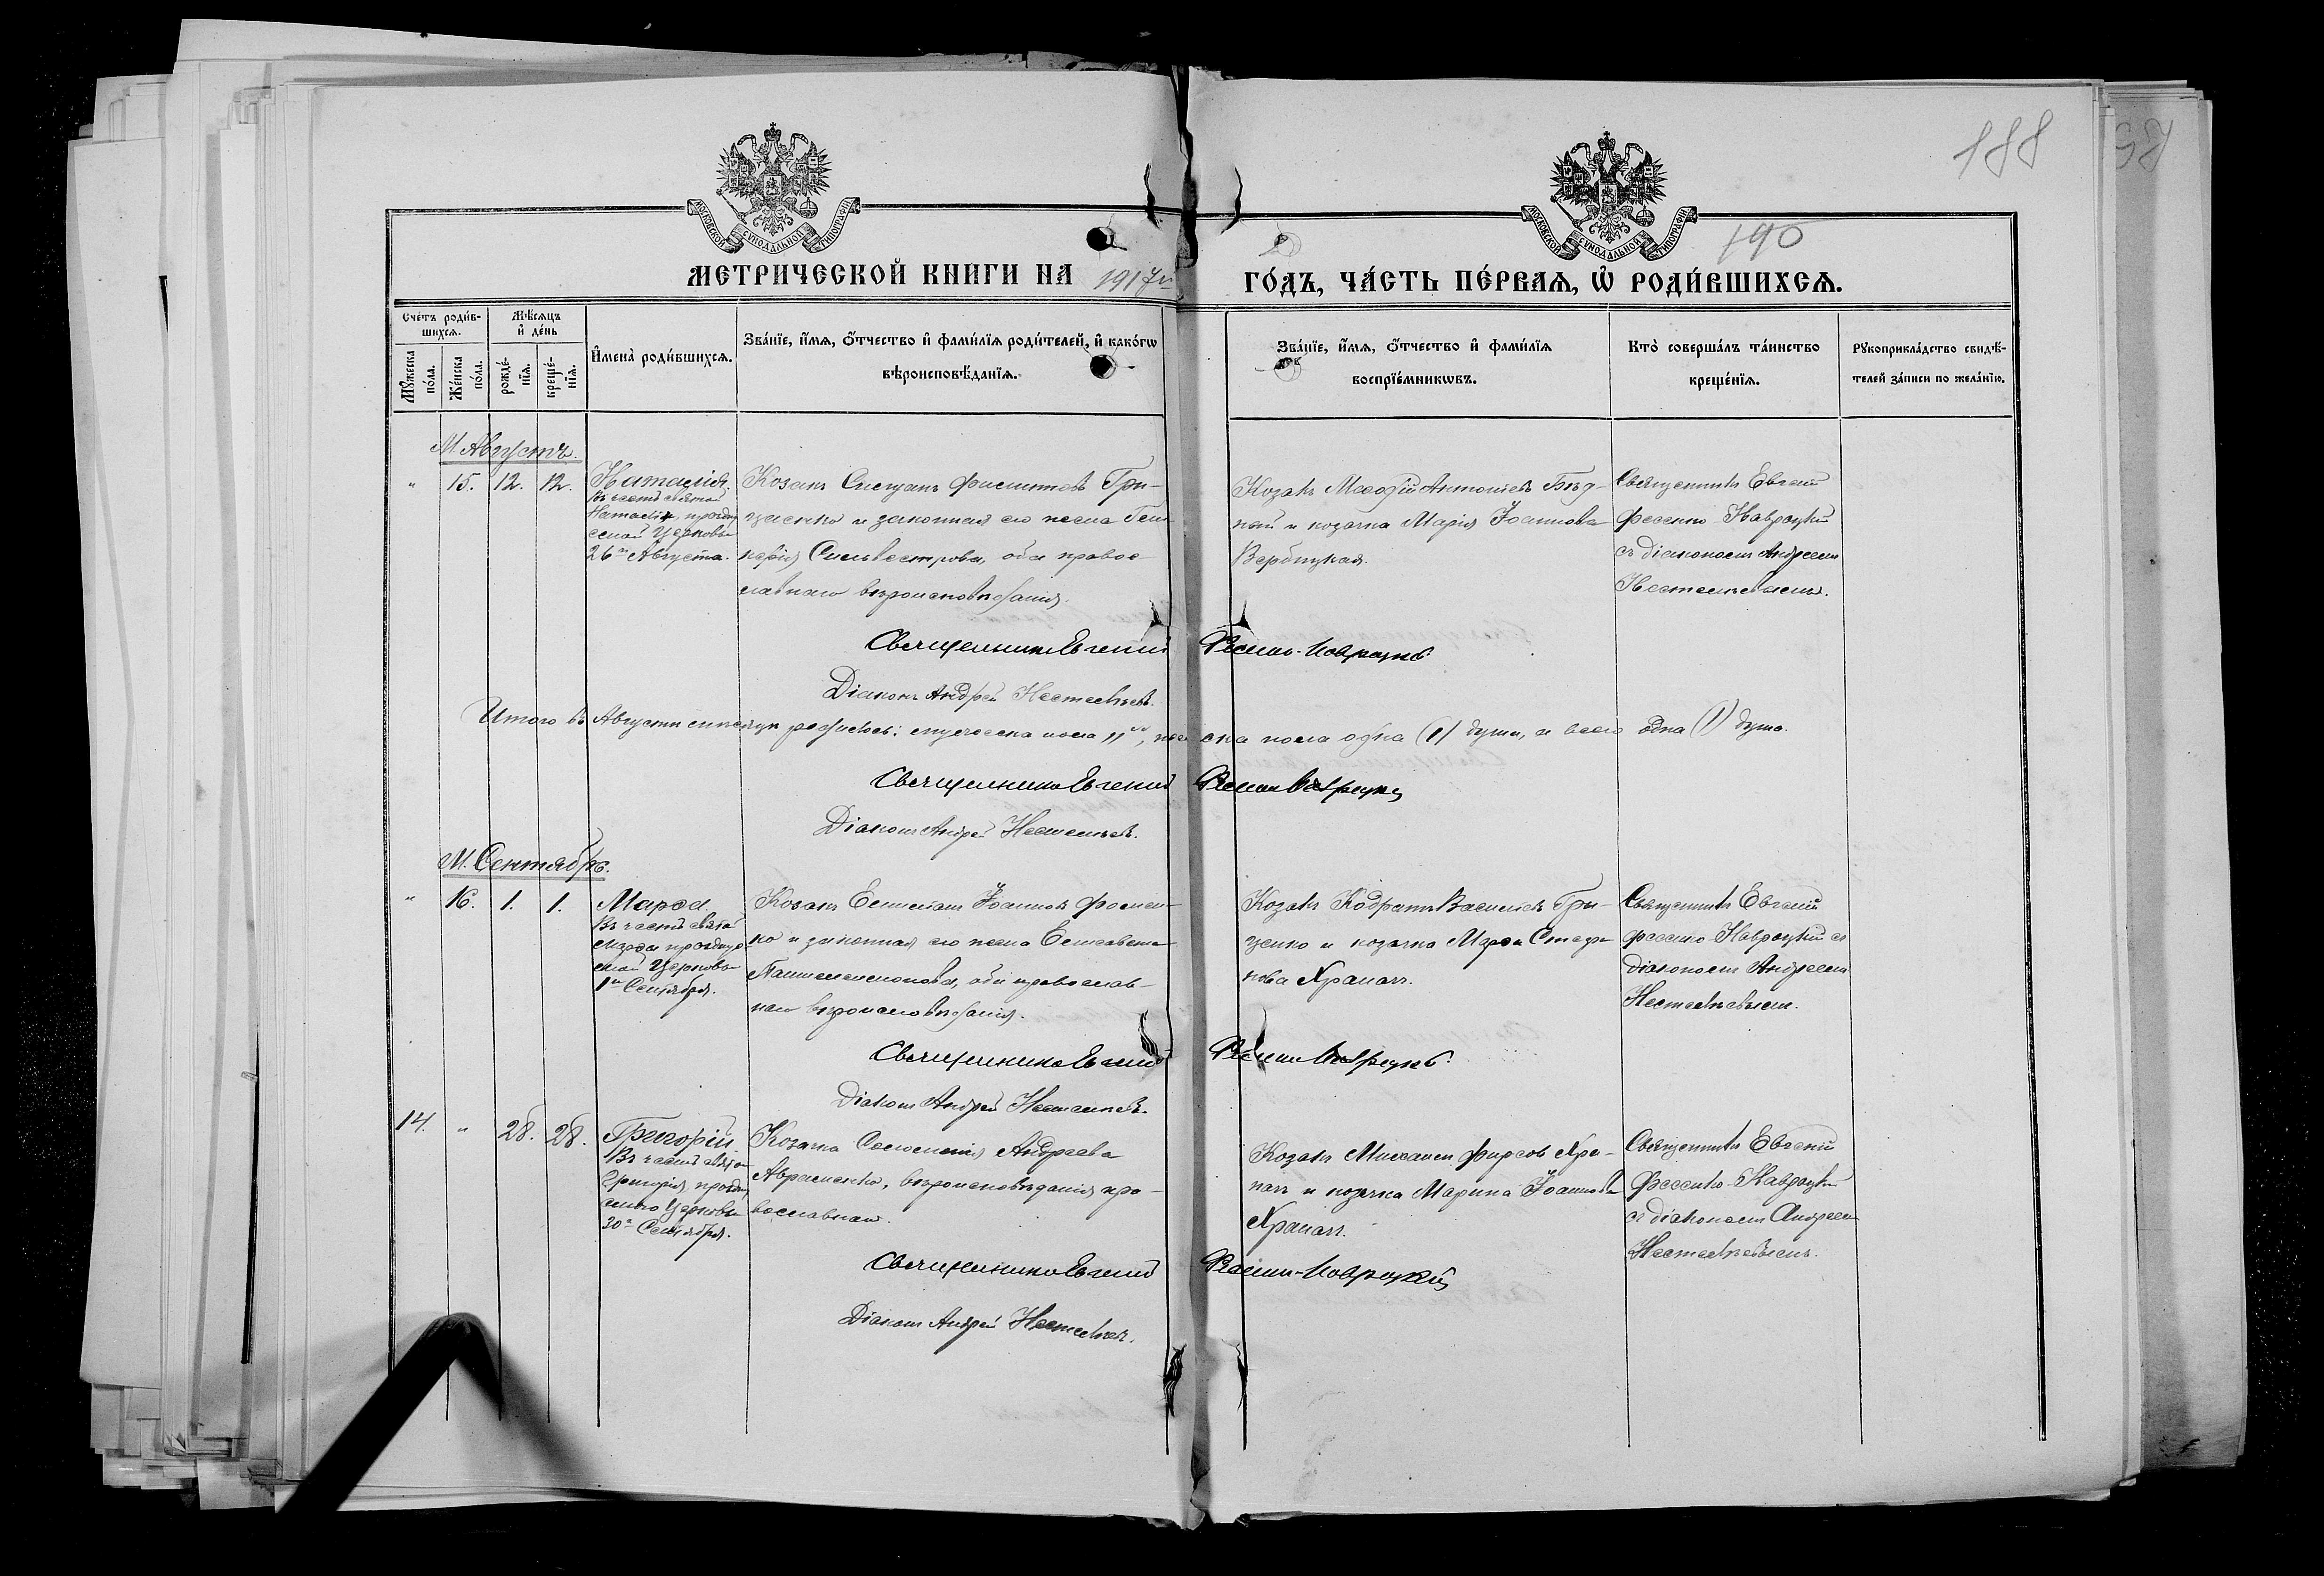 188
190
МОСКОВСКОЙ СѴНОДАЛЬНОЙ ТИПОГРАФІИ
МОСКОВСКОЙ СѴНОДАЛЬНОЙ ТИПОГРАФІИ
МЕТРИЧЕСКОЙ КНИГИ НА 1917й ГО́ДЪ, ЧА́СТЬ ПЕ́РВАЯ, Ѡ҆ РОДИ́ВШИХСЯ.
Сче́тъ роди́в-
шихся.
Мѣ́сяцъ
и҆ де́нь
Мꙋ́жеска по́ла.
Же́нска по́ла.
рожде́-нїя.
креще́-нїя.
И҆мена̀ роди́вшихся.
Зва́нїе, и҆́мя, ѻ҆́тчество и҆ фами́лїя роди́телей, и҆ како́гѡ
вѣроисповѣ́данїя.
Зва́нїе, и҆́мя, ѻ҆́тчество и҆ фами́лїя
воспрїе́мникѡвъ.
Кто̀ соверша́лъ та́инство
креще́нїя.
Рꙋкоприкла́дство свидѣ́-
телей за́писи по жела́нїю.
М. Августъ.
" 15. 12. 12. Наталія.
Въ честь святой
Наталіи, праздну
емой Церковью
26го Августа.
Козакъ Степанъ Филиповъ Гри-
щенко и законная его жена
Сильвестрова, оба право-
славнаго вѣроисповѣданія.
Козакъ Меѳодій Антоніевъ Бѣд-
ный и козачка Марія Іоаннова
Вербицкая.
Священникъ Евгеній
Фесенко-Навроцкій
съ діакономъ Андреемъ
Священникъ Евгеній Фесенко-Навроцкій
Діаконъ Андрей
Итого въ Августѣ мѣсяцѣ родилось: мужеска пола "", женска пола одна (1) душа, а всего одна (1) душа.
Священникъ Евгеній Фесенко-Навроцкій
Діаконъ Андрей
М. Сентябрь.
" 16. 1. 1. Марѳа.
Въ честь святой
Марѳы празднуе-
мой Церковью
1го Сентября.
Козакъ Іоанновъ Фомен-
ко и законная его жена Елисавета
Пантелеимонова, оба православ-
наго вѣроисповѣданія.
Козакъ Кодратъ Васильевъ Гри-
щенко и козачка Марѳа Стефа-
нова Храпачъ.
Священникъ Евгеній
Фесенко-Навроцкій съ
діакономъ Андреемъ
Священникъ Евгеній Фесенко-Навроцкій
Діаконъ Андрей
14. " 28. 28. Григорій.
Въ честь свято
Григорія, праздну
емаго Церковью
30го Сентября.
Козачка Соломонія Андреева
Авраменко, вѣроисповѣданія пра-
вославнаго.
Козакъ Михаилъ Фирсовъ Хра-
пачъ и козачка Марина Іоаннова
Храпачъ.
Священникъ Евгеній
Фесенко-Навроцкій
съ діакономъ Андреемъ
Священникъ Евгеній Фесенко-Навроцкій
Діаконъ Андрей